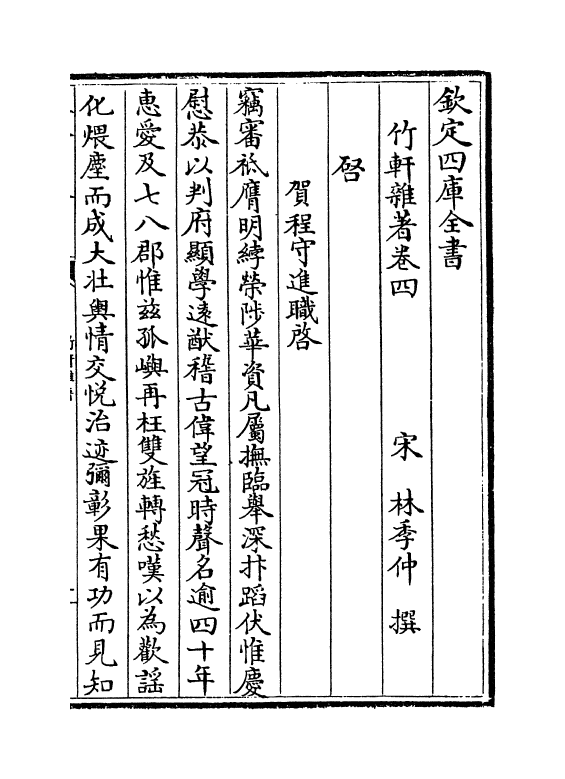 欽定四庫全書
竹軒雜著卷四 宋 林季仲 撰
啓
賀程守進職啓
竊審祗膺明綍榮陟華資凡屬撫臨舉深抃蹈伏惟慶
慰恭以判府顯學遠猷稽古偉望冠時聲名逾四十年
惠愛及七八郡惟兹孤嶼再枉雙旌轉愁嘆以為歡謡
化煨塵而成大壯輿情交悦治迹彌彰果有功而見知